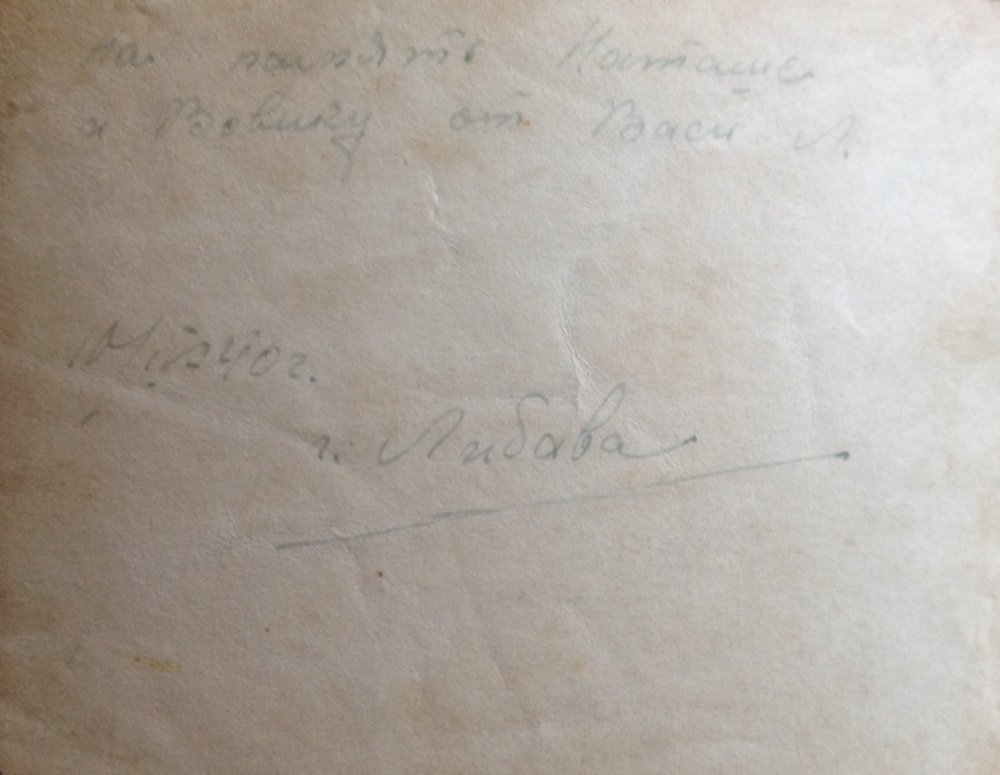 на память Наташе
и Вовику от Васи Л.
г. Либава